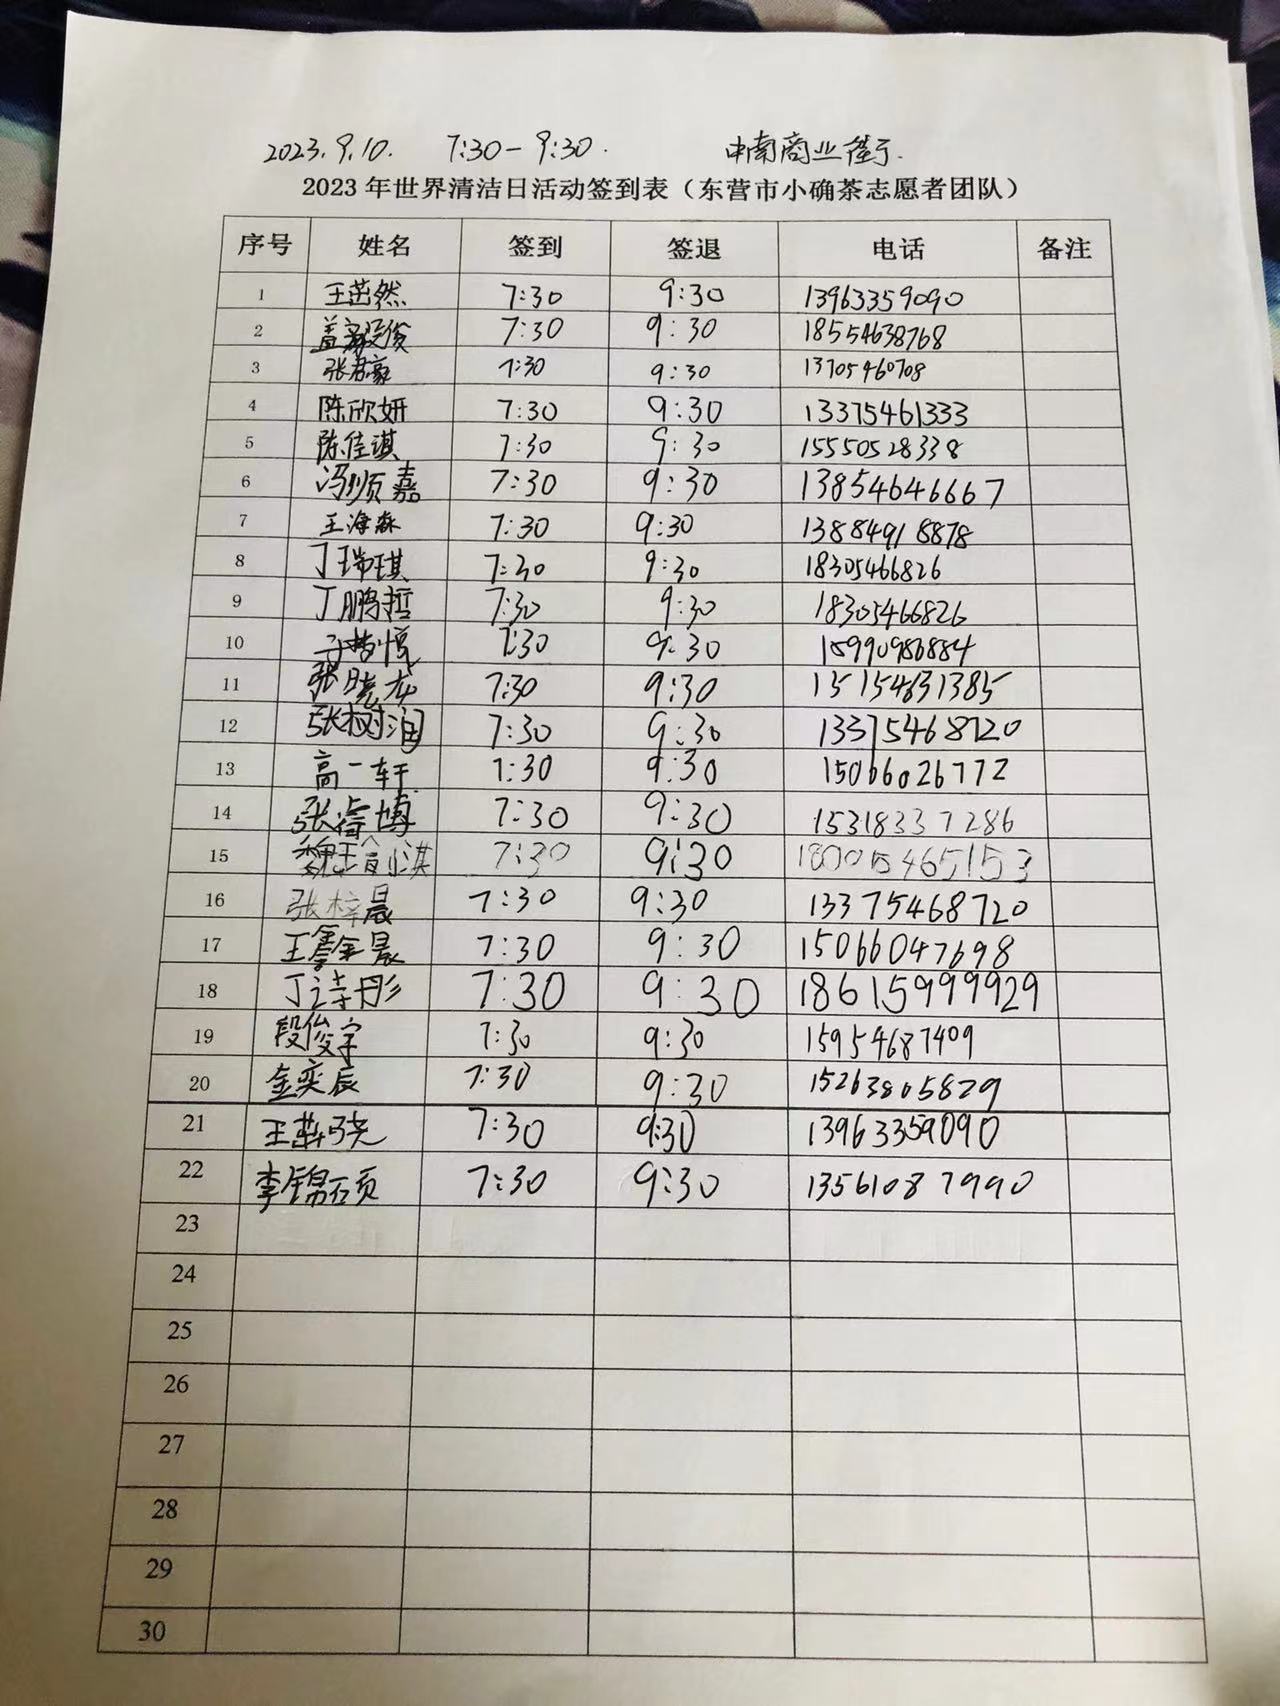 2023.9.10. 7:30-9:30. 中南商业街.
2023年世界清洁日活动签到表（东营市小确茶志愿者团队）
序号 姓名 签到 签退 电话 备注
1 王茁然 7:30 9:30 13963359090
2 盖毅俊 7:30 9:30 18554638768
3 张君豪 7:30 9:30 13705460708
4 陈欣妍 7:30 9:30 13375461333
5 陈佳淇 7:30 9:30 15550528338
6 冯顺嘉 7:30 9:30 13854646667
7 王海森 7:30 9:30 13884918878
8 丁瑞琪 7:30 9:30 18305466826
9 丁鹏哲 7:30 9:30 18305466826
10 7:30 9:30 15990986884
11 张晓龙 7:30 9:30 15154631385
12 张树润 7:30 9:30 13375468720
13 高一轩 7:30 9:30 15066026772
14 张睿博 7:30 9:30 15318337286
15 魏瑜淇 7:30 9:30
16 张梓晨 7:30 9:30 13375468720
17 王鑫晨 7:30 9:30 15066047698
18 丁诗彤 7:30 9:30 18615999929
19 段俊宇 7:30 9:30 15954687409
20 金奕辰 7:30 9:30 15263805829
21 7:30 9:30 13963359090
22 李锦硕 7:30 9:30 13561087990
23
24
25
26
27
28
29
30